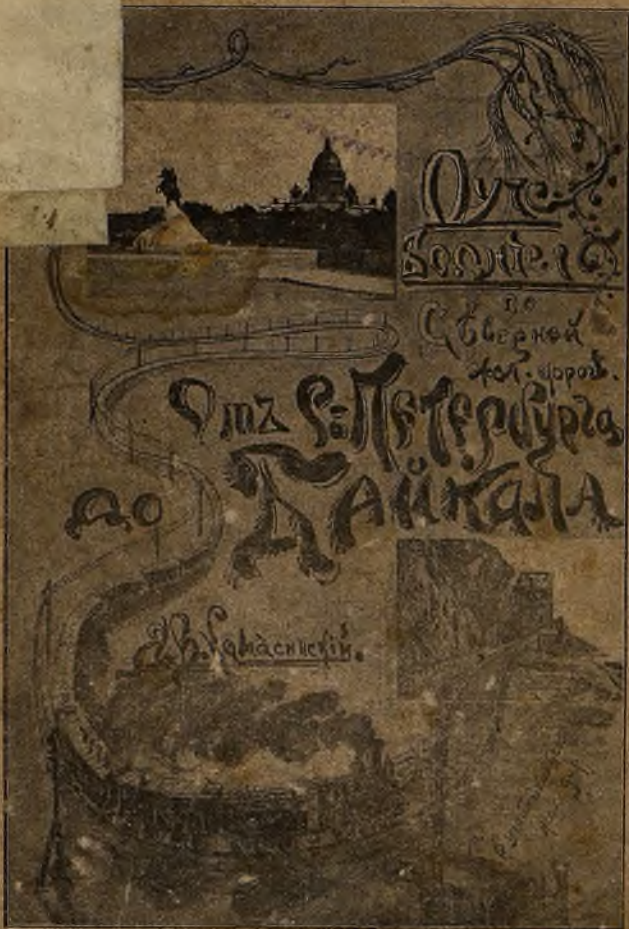 Путе-
водитель
по
Сѣверной
жел. дорогѣ.
Отъ С=Петербурга
до Байкала